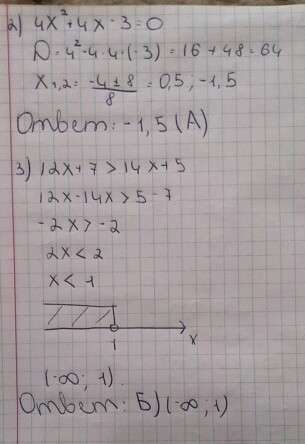 2) 4x²+4x-3=0
D=4²-4·4·(-3)=16+48=64
x₁,₂=-4±8/8=0,5;-1,5
Ответ:-1,5(А)
3) 12x+7>14x+5
12x-14x>5-7
-2x>-2
2x<2
x<1
1
x
(-∞;1).
Ответ: Б)(-∞;1)